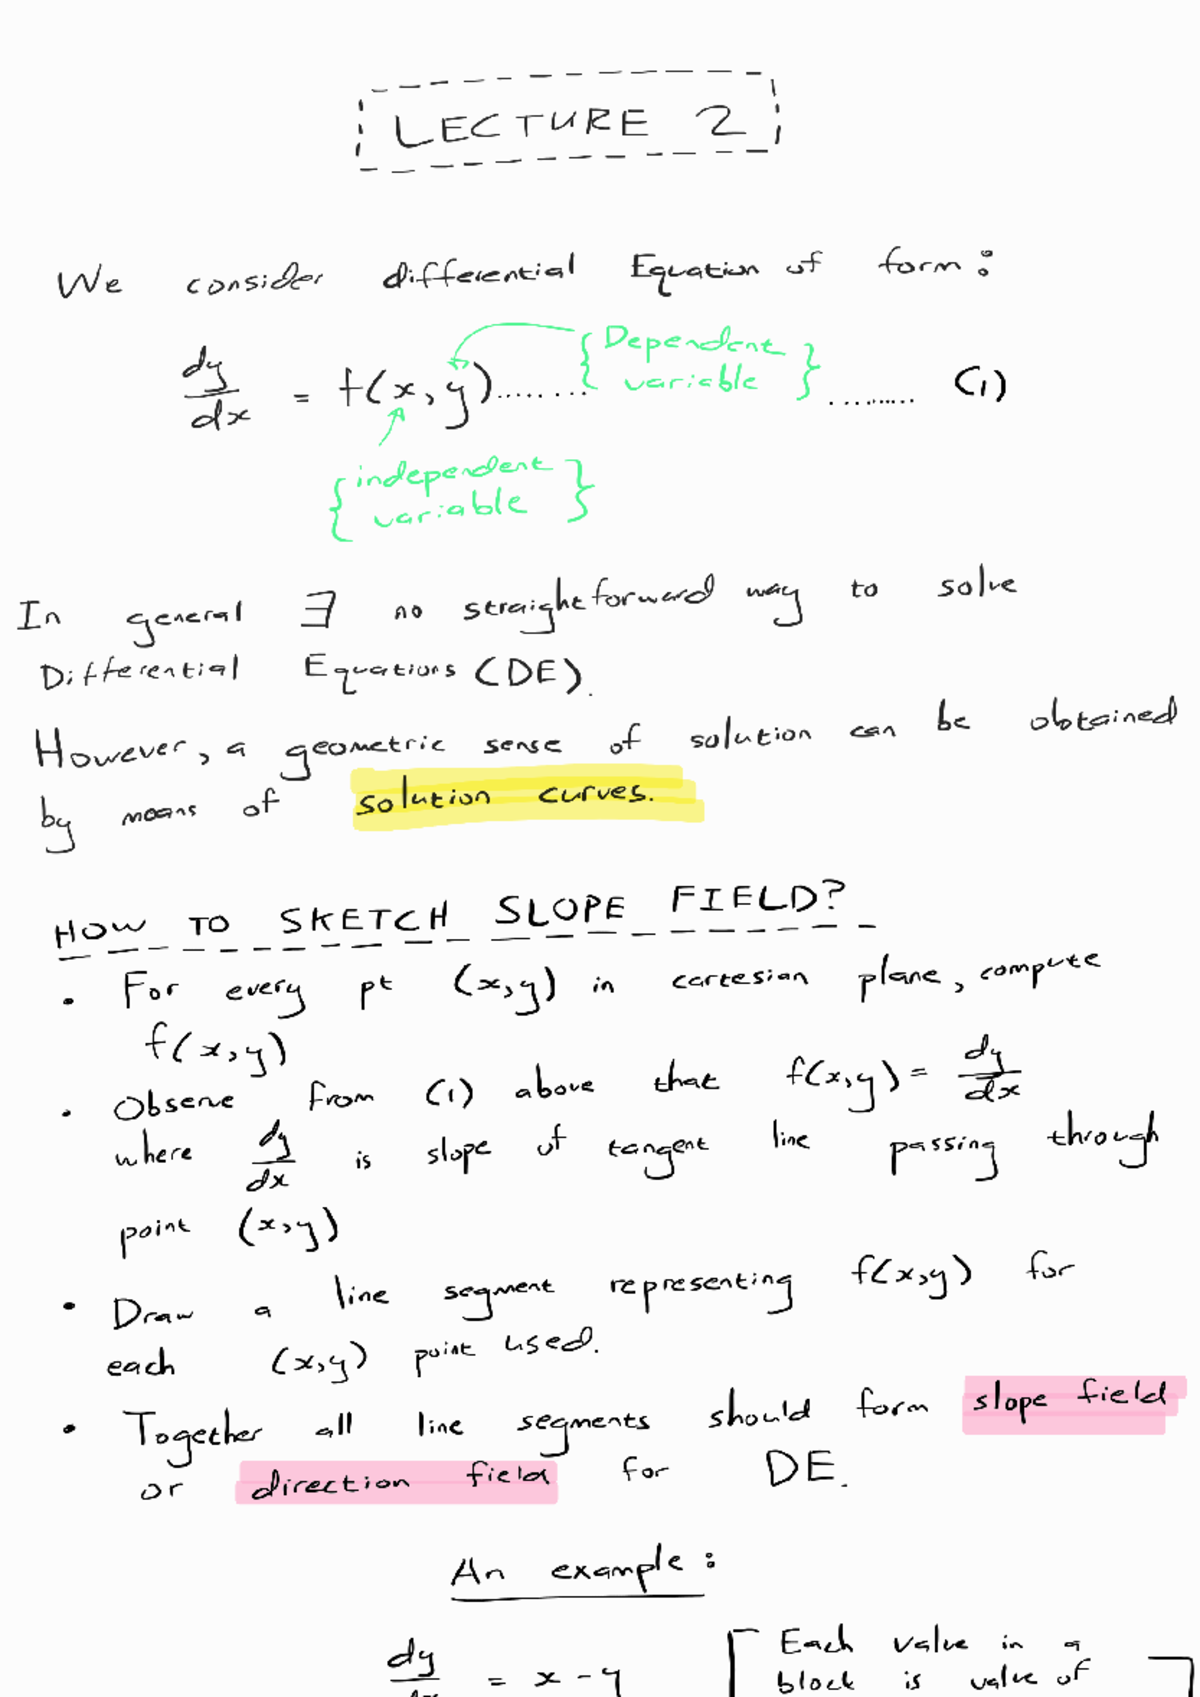 LECTURE 2
We consider differential Equation of form:
dy/dx = f(x,y)........ {Dependent variable} ......... (1)
{independent variable}
In general ∃ no straightforward way to solve
Differential Equations (DE).
However, a geometric sense of solution can be obtained
by means of solution curves.
HOW TO SKETCH SLOPE FIELD?
• For every pt (x,y) in cartesian plane, compute
f(x,y)
• Observe from (1) above that f(x,y) = dy/dx
where dy/dx is slope of tangent line passing through
point (x,y)
• Draw a line segment representing f(x,y) for
each (x,y) point used.
• Together all line segments should form slope field
or direction field for DE.
An example:
dy/dx = x - y [Each value in a
block is value of